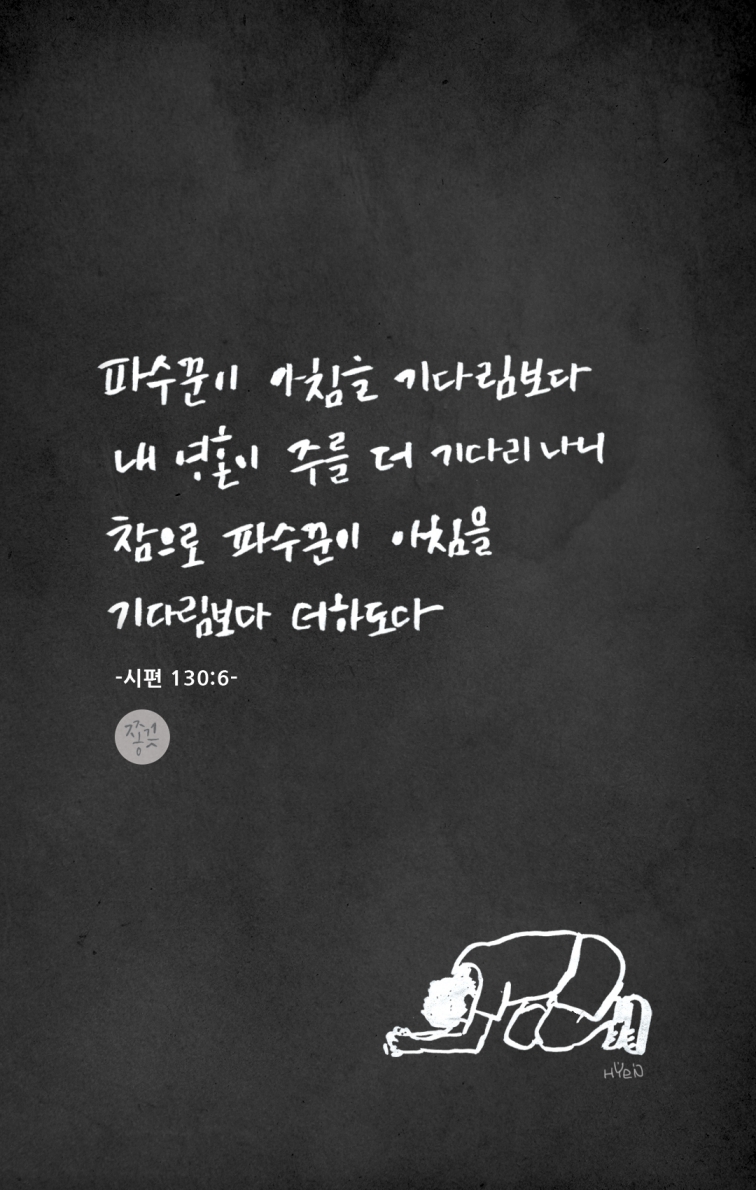 파수꾼이 아침을 기다림보다
내 영혼이 주를 더 기다리나니
참으로 파수꾼이 아침을
기다림보다 더하도다
-시편 130:6-
HYEN